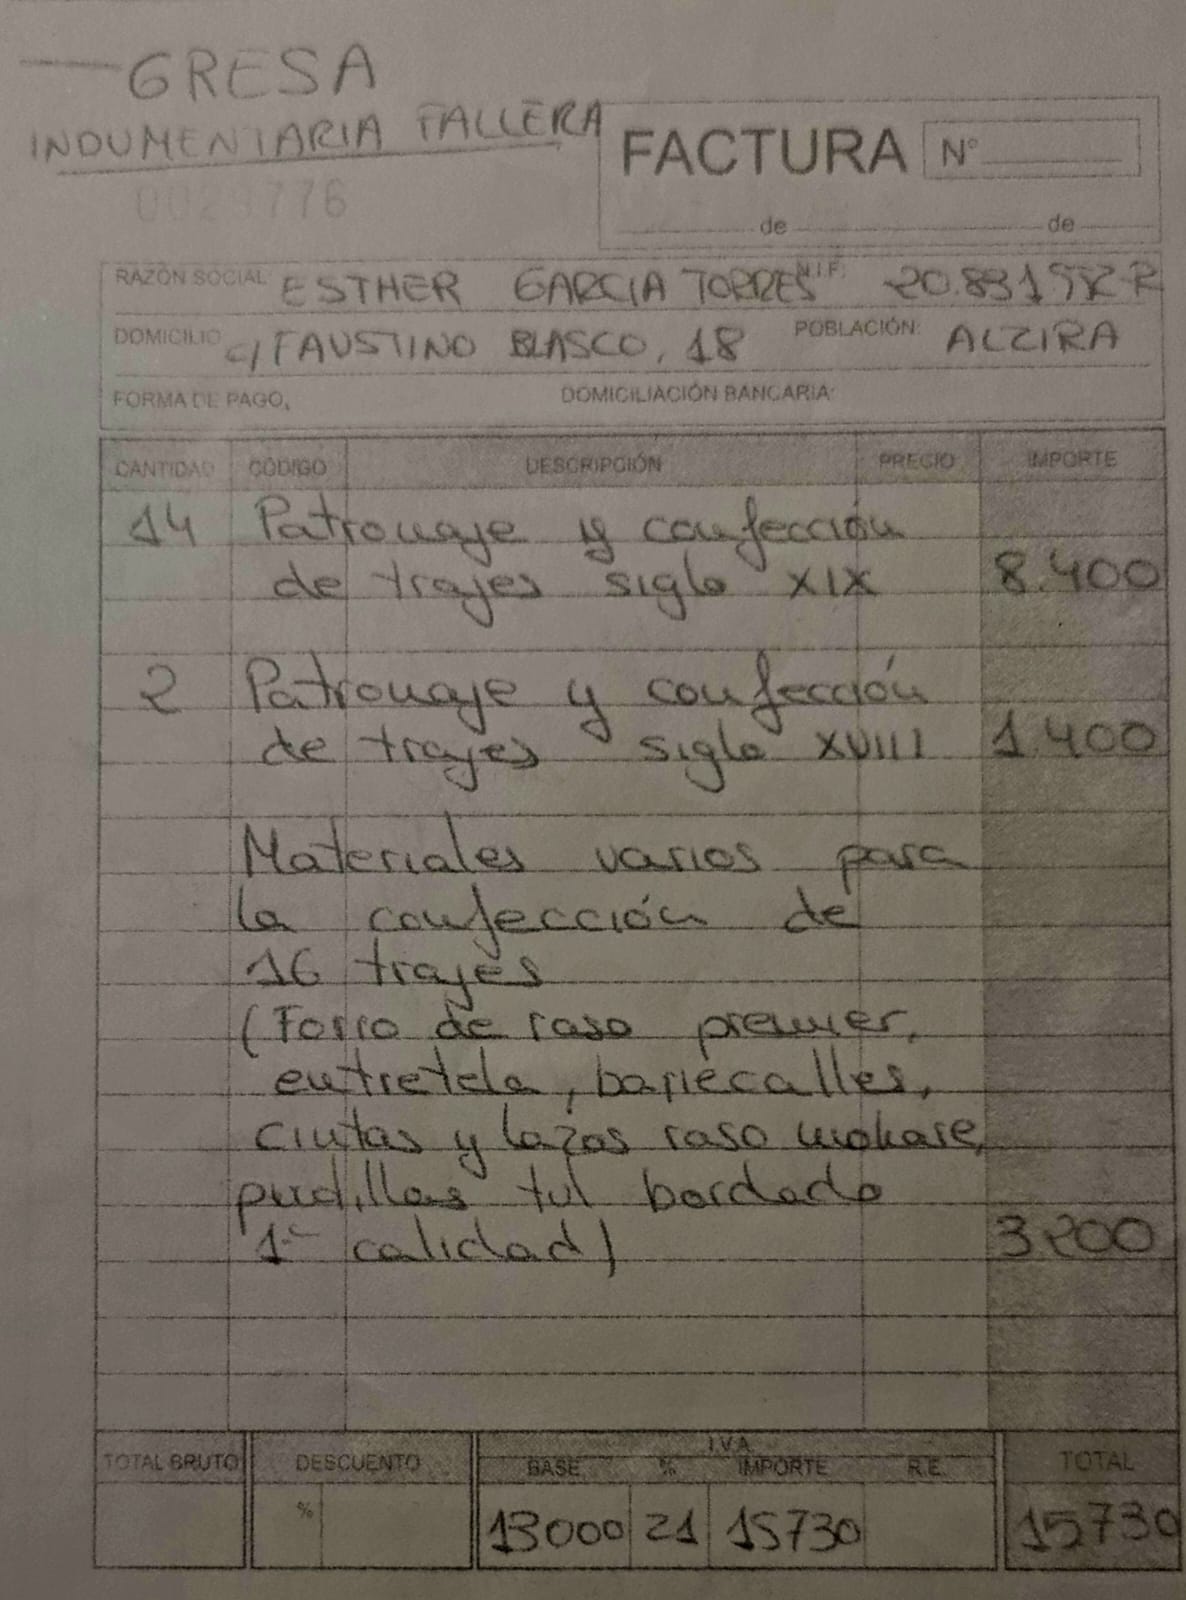 GRESA
INDUMENTARIA FALLERA
FACTURA Nº
de de
RAZÓN SOCIAL ESTHER GARCIA TORRES N.I.F.
DOMICILIO c/ FAUSTINO BLASCO, 18 POBLACIÓN: ALZIRA
FORMA DE PAGO, DOMICILIACIÓN BANCARIA:
CANTIDAD CÓDIGO DESCRIPCIÓN PRECIO IMPORTE
14 Patronaje y confección
de trajes siglo XIX 8.400
2 Patronaje y confección
de trajes siglo XVIII 1.400
Materiales varios para
la confección de
16 trajes
(Forro de raso premier,
entretela, barrecalles,
cintas y lazos raso mohare,
puntillas tul bordado
1ª calidad) 3200
I.V.A.
TOTAL BRUTO DESCUENTO BASE % IMPORTE R.E. TOTAL
% 13000 21 15730 15730